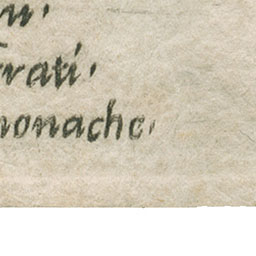 frati,
monache,